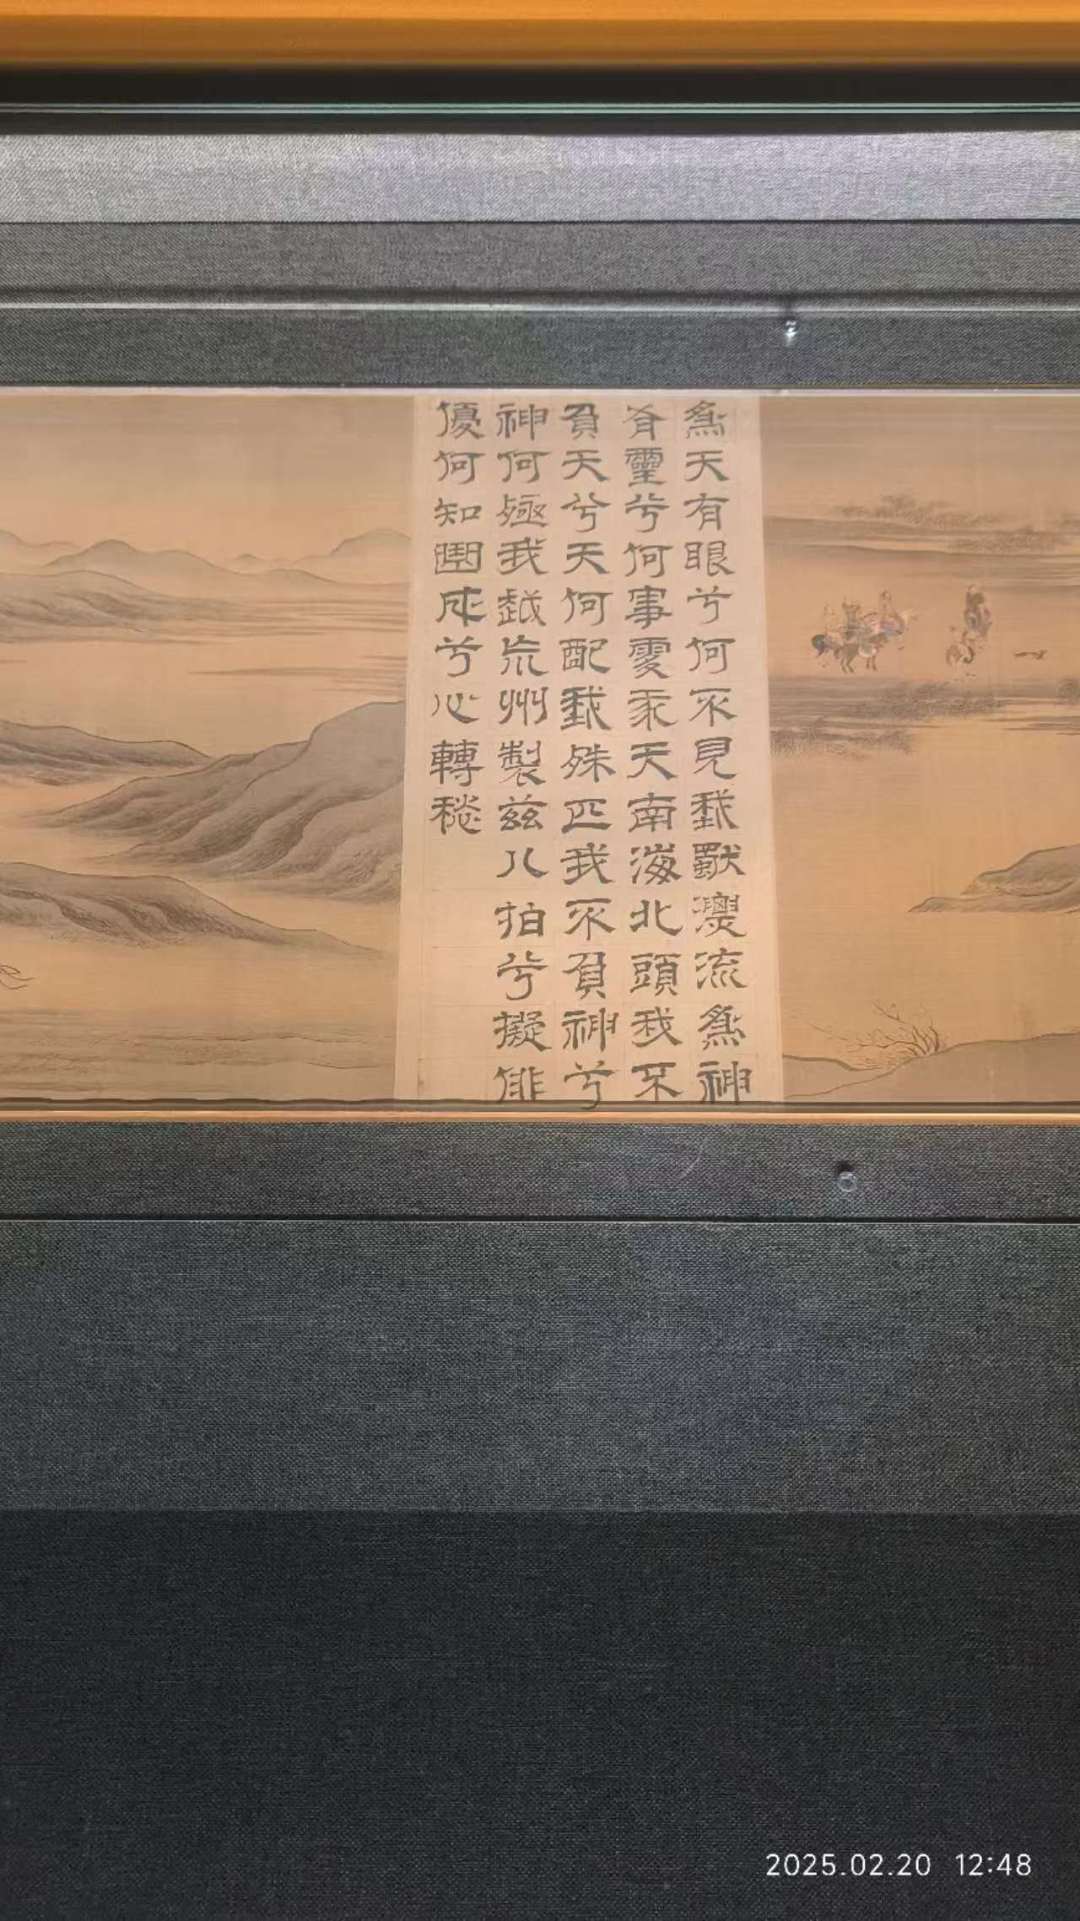 為天有眼兮何不見我獨漂流為神
有靈兮何事處我天南海北頭我不
負天兮天何配我殊匹我不負神兮
神何殛我越荒州製茲八拍兮擬俳
優何知曲成兮心轉愁
2025.02.20 12:48